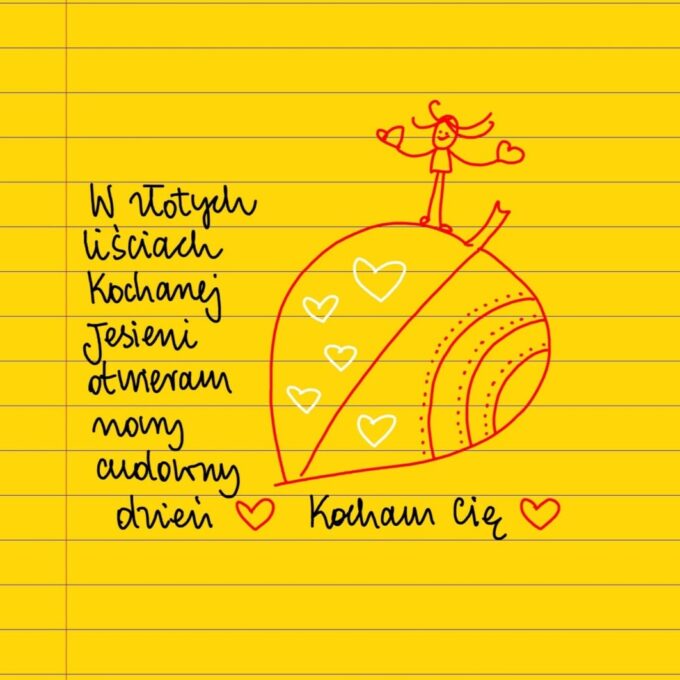 W złotych
liściach
Kochanej
Jesieni
otwieram
nowy
cudowny
dzień Kocham Cię